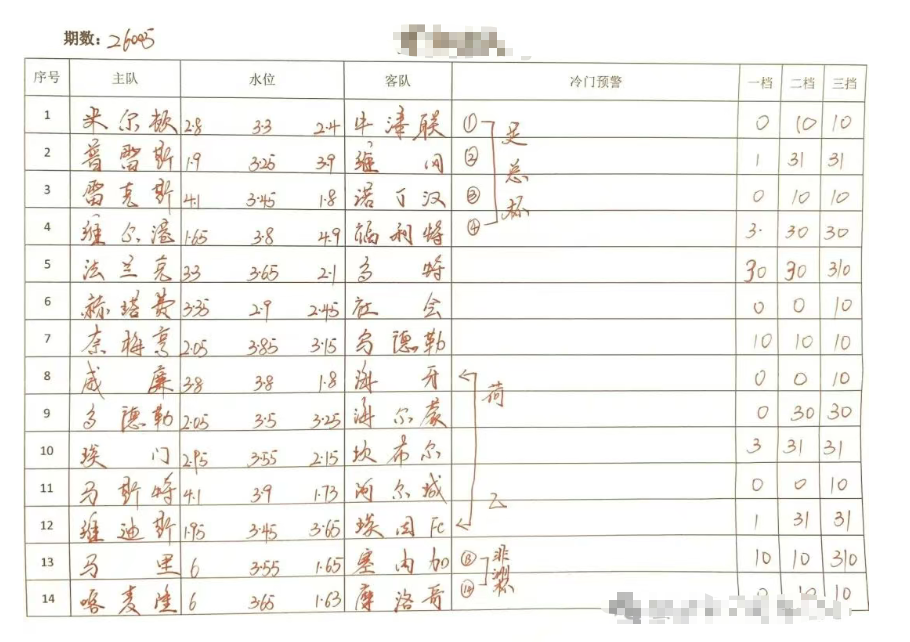 期数: 26005
序号 主队 水位 客队 冷门预警 一档 二档 三挡
1 米尔顿 2.8 3.3 2.4 牛津联 ① 0 10 10
2 普雷斯 1.9 3.25 3.9 维冈 ② 1 31 31
3 雷克斯 4.1 3.45 1.8 诺丁汉 ③ 0 10 10
4 维尔港 1.65 3.8 4.9 福利特 ④ 3. 30 30
足总杯
5 法兰克 3.3 3.65 2.1 多特 30 30 310
6 赫塔费 3.35 2.9 2.45 社会 0 0 10
7 奈梅亨 2.05 3.85 3.15 乌德勒 10 10 10
8 威廉 3.8 3.8 1.8 海牙 0 0 10
9 乌德勒 2.05 3.5 3.25 海尔蒙 0 30 30
10 埃门 2.95 3.55 2.15 坎布尔 3 31 31
11 马斯特 4.1 3.9 1.73 阿尔城 0 0 10
12 维迪斯 1.95 3.45 3.65 埃因FC 1 31 31
荷乙
13 马里 6 3.55 1.65 塞内加 ⑬ 10 10 310
14 喀麦隆 6 3.65 1.63 摩洛哥 ⑭ 0 10 10
非洲杯